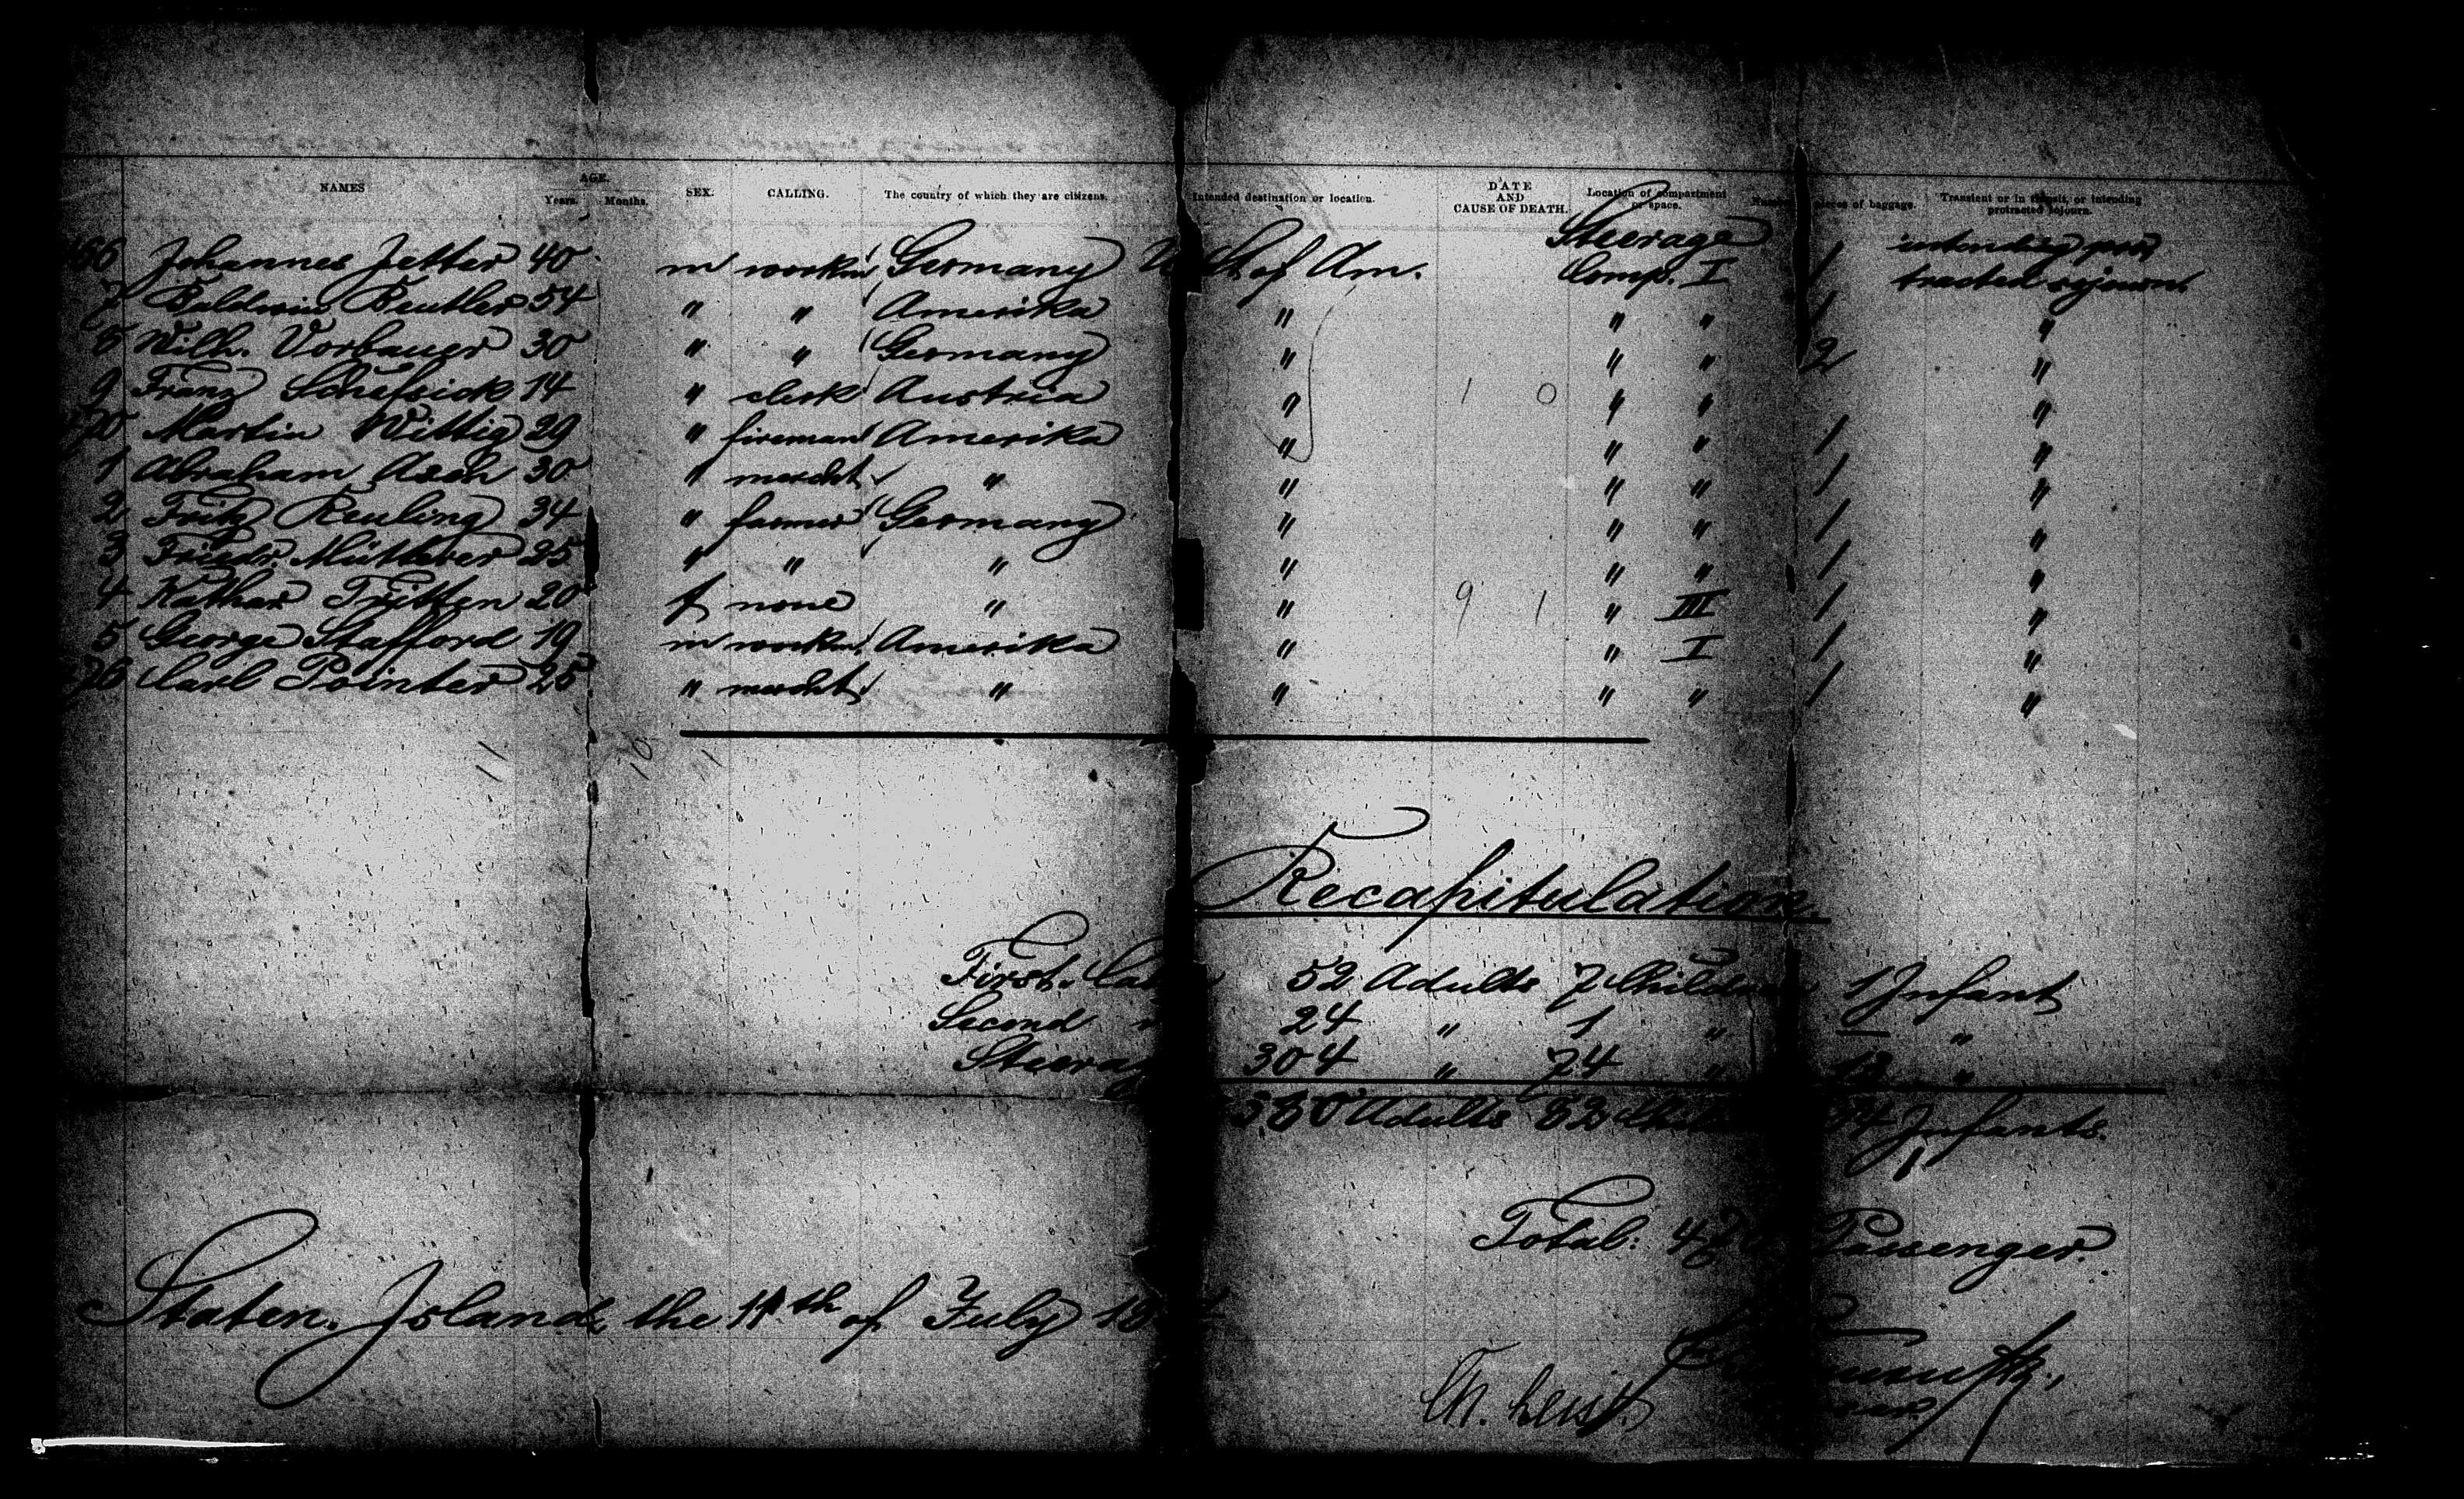 NAMES AGE. Years. Months. SEX. CALLING. The country of which they are citizens. Intended destination or location. DATE AND CAUSE OF DEATH. Location of compartment or space. pieces of baggage. Transient or in transit, or intending protracted sojourn.
66 Johannes Jetter 40 m workm. Germany U. St. of Am. Steerage Comp. I 1 intending protracted sojourn.
7 Baldwin Beutler 54 " " Amerika " " " 1 "
8 Wilh. Vorbauer 30 " " Germany " " " 2 "
9 Franz 14 " clerk Austria " 1 0 " " "
70 Martin Wittig 29 " fireman Amerika " " " 1 "
1 Abraham Asch 30 " mercht. " " " " 1 "
2 Fritz Reuling 34 " farmer Germany " " " 1 "
3 Friedr. Mütterer 25 " " " " " " 1 "
4 Kathar Tritten 20 f none " " 9 1 " III 1 "
5 George Stafford 19 m workm. Amerika " " I 1 "
76 Carl Pointer 25 " mercht. " " " " 1 "
11 10 11
Recapitulation.
First. 52 Adults 7 Children 1 Infant
Second 24 " 1 " — "
Steerag 304 " 74 " 13 "
380 Adults 82 14 Infants.
Total: 47 Passenger.
Staten. Island, the 11th of July 18
Ch. Leist.